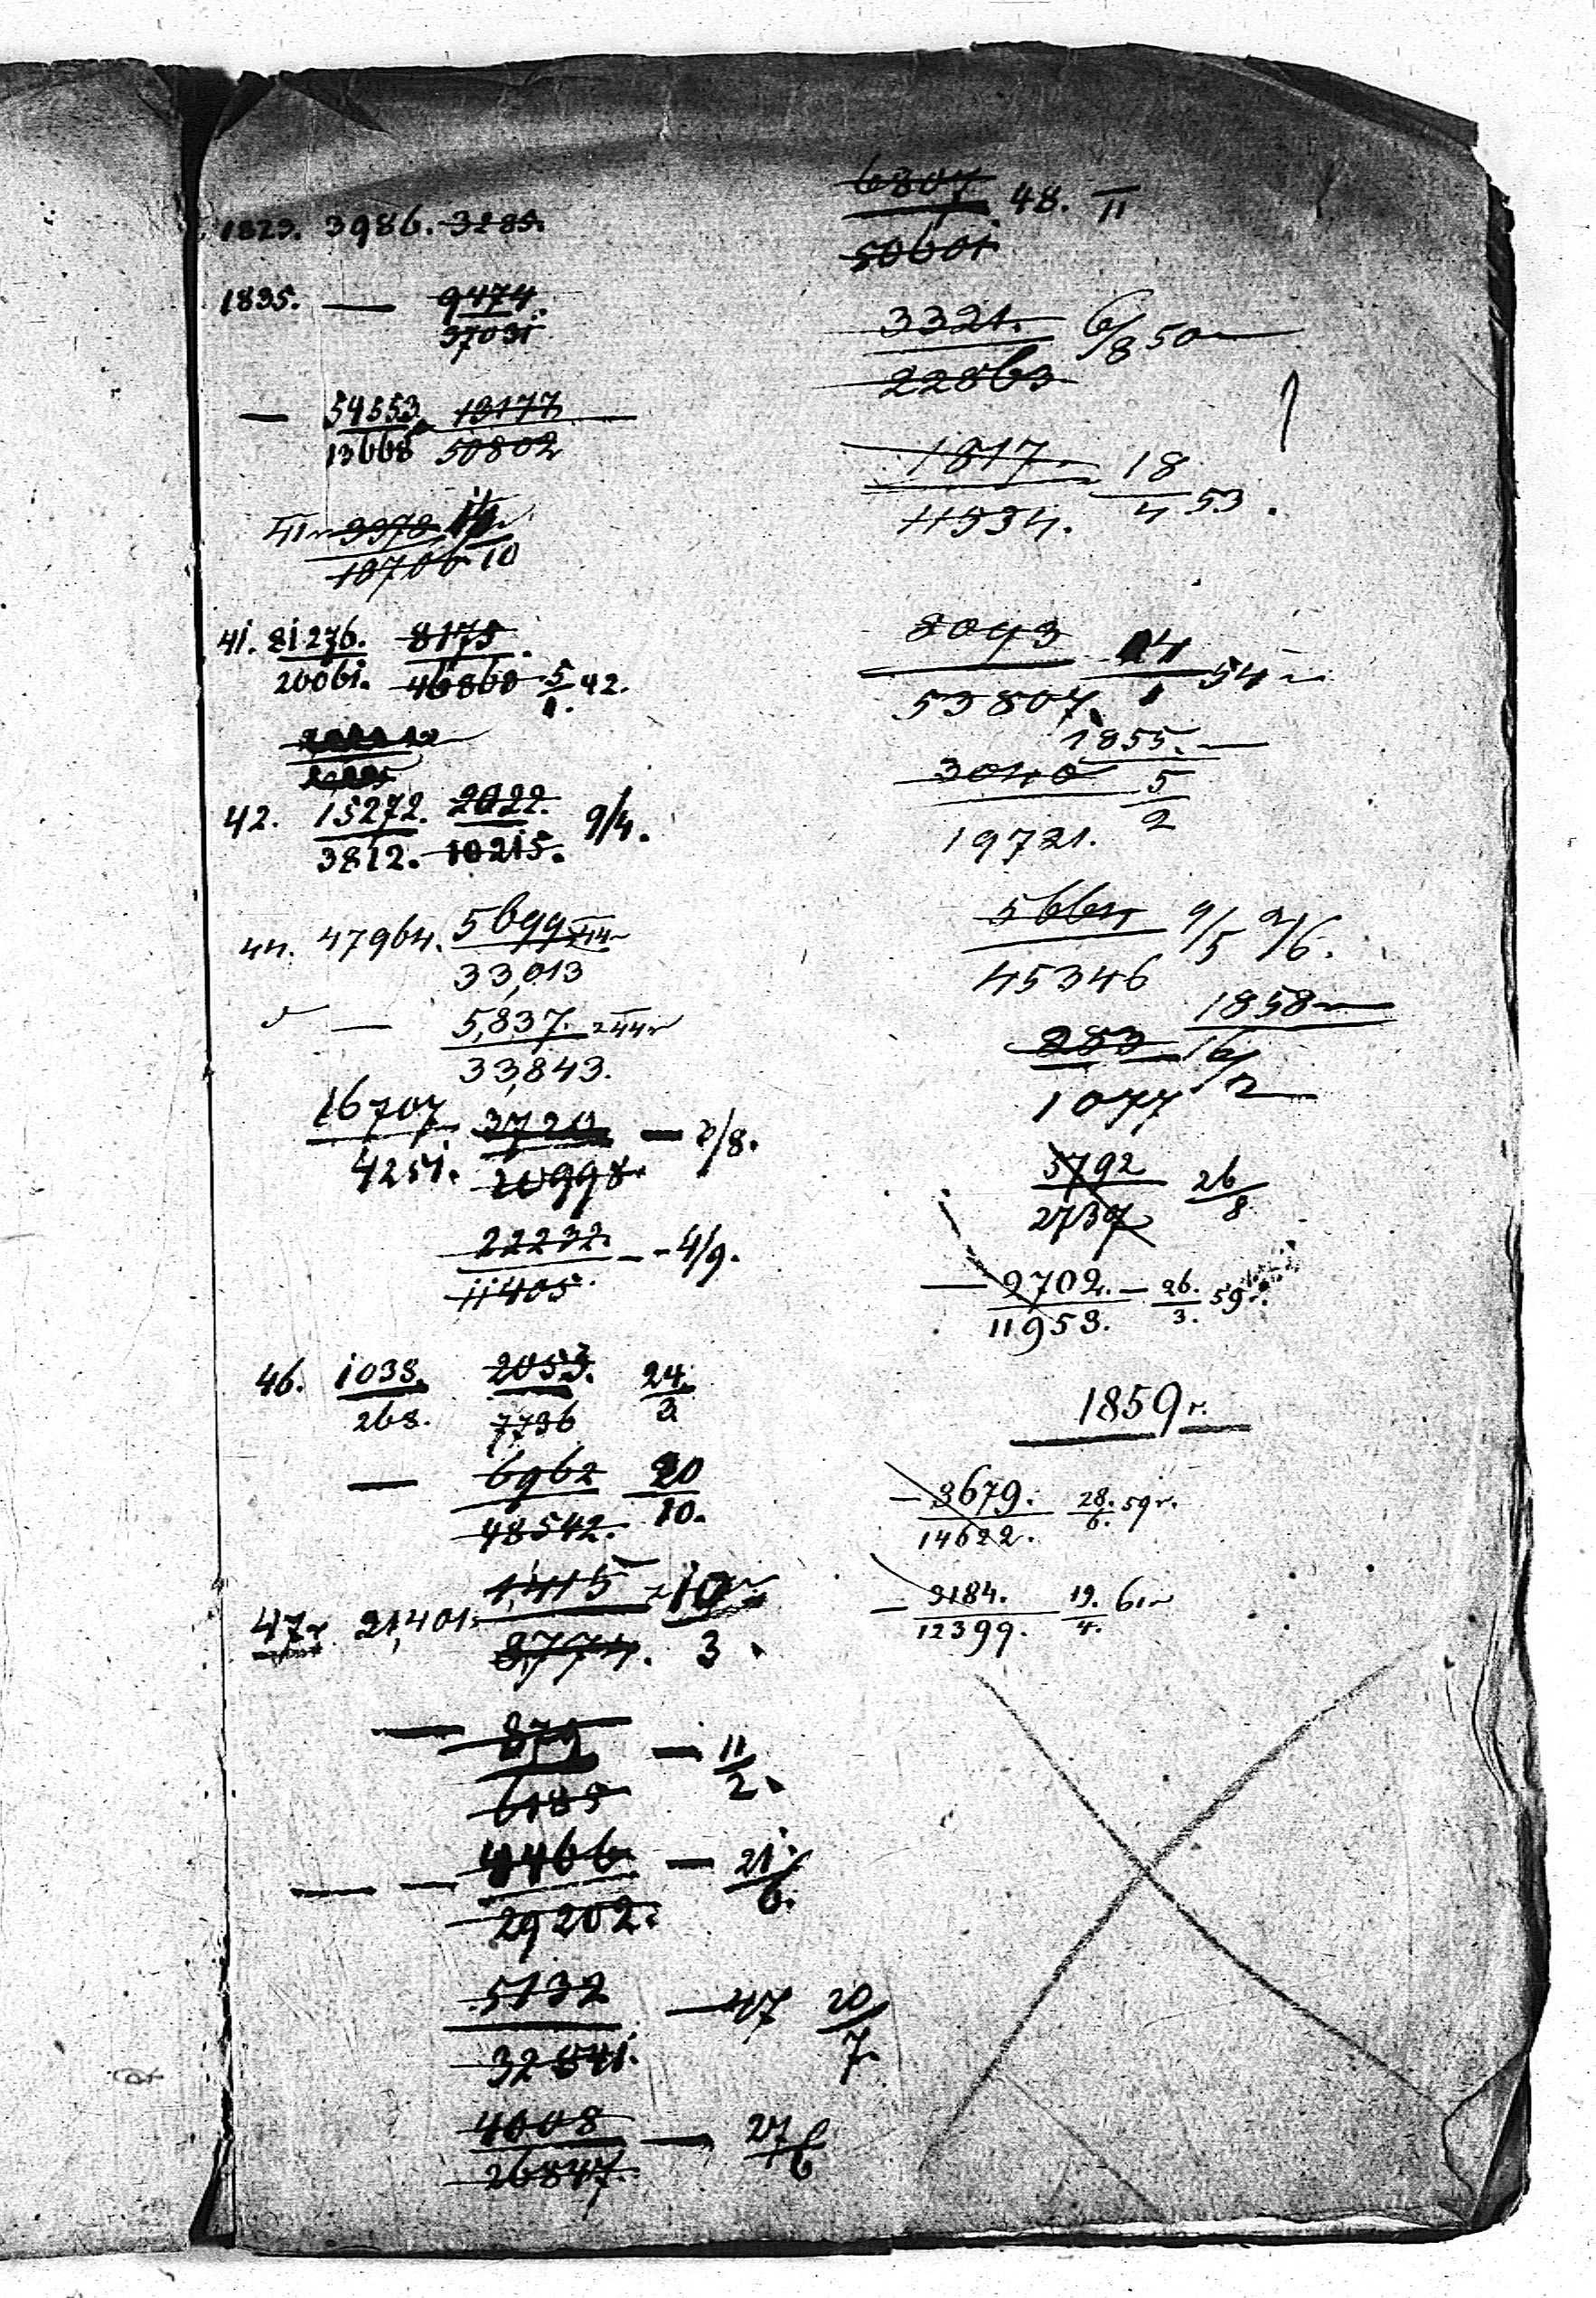 1823. 3986. 3283.
1835. — 9474.
37031
— 54553. 13177
13668 50802
III 9978
10706 10
41. 81276. 8175.
20061. 46860 5/1. 42.
42. 15272. 2022. 9/4.
3812. 10215.
44. 47964. 5699
33,013
— 5,837.
33,843.
16707. 3720 — 2/8.
4251. 20998.
22232. — 4/9.
11405.
46. 1038. 2053. 24/3
268. 7736
— 6962 20
48542. 10.
47 21,401. 1,415 10
8,774. 3.
— 879 — 11
6185 2.
— — 4466 — 21
29202. 6.
5132 — 47 20
32541. 7.
4008 — 27
26847. 6
6807 48. II
50601
3321. 6/8 50
22863
1817 18
11534. 4 53.
8043 14
53807. 1 54
1855.
3040 5
19721. 2
5661 9/5 2/6.
45346
1858
283 16/
1077 12
5792 26
27397 8
— 2702. — 26. 59
11953. 3.
1859 г.
— 3679. 28. 59 г.
14622. 6.
— 3184. 19. 61
12399. 4.